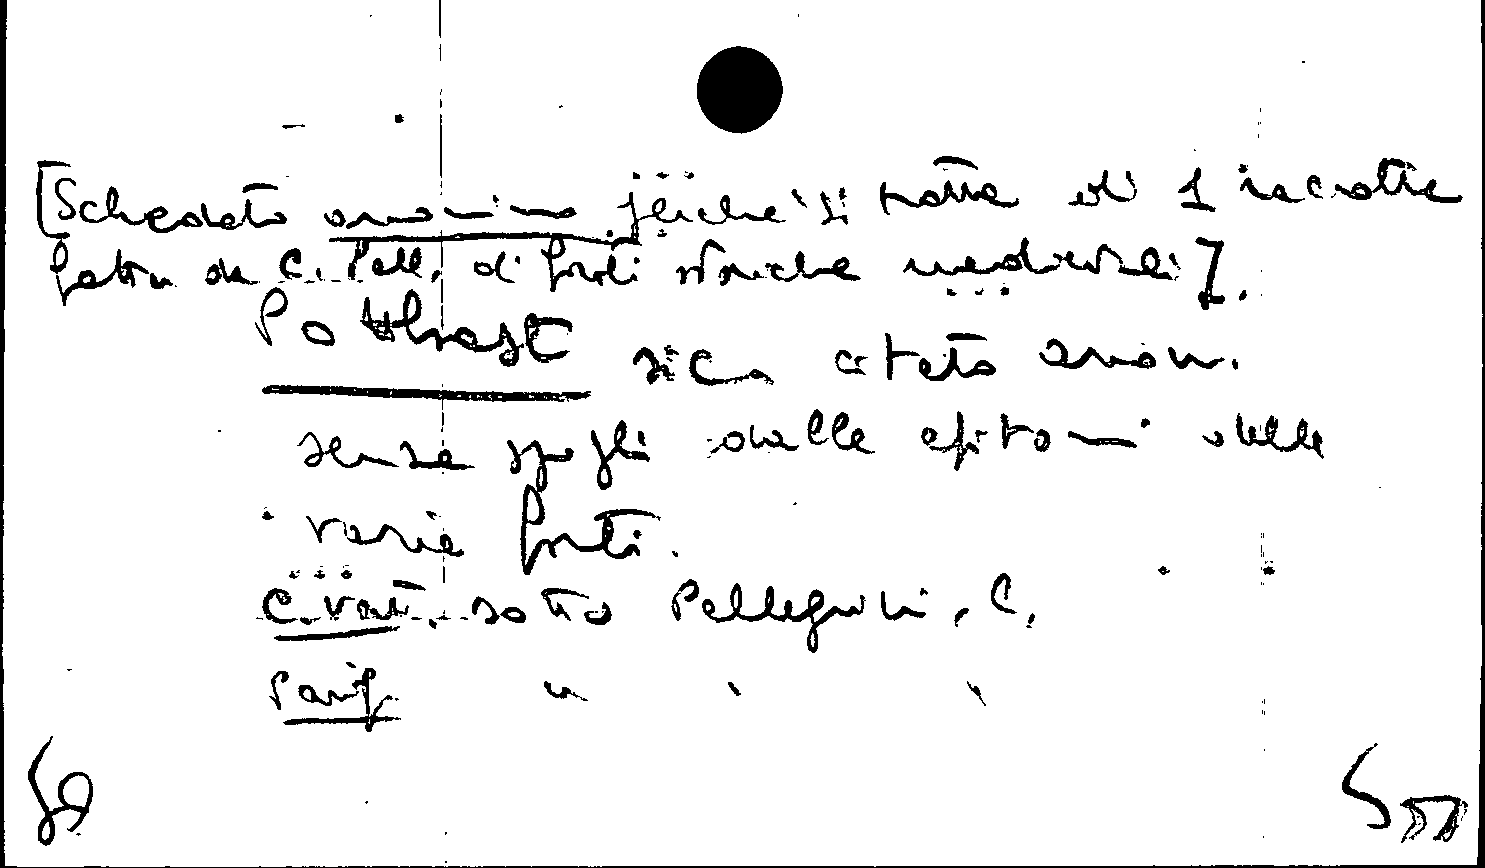 [Schedato anonimo perché si tratta di 1 raccolta
fatta da C. Pell. di fonti storiche medievali].
Potthast citato anon.
senza spogli dalle epitomi delle
varie fonti.
C. Vat. sotto Pellegrini, C.
Parig " " "